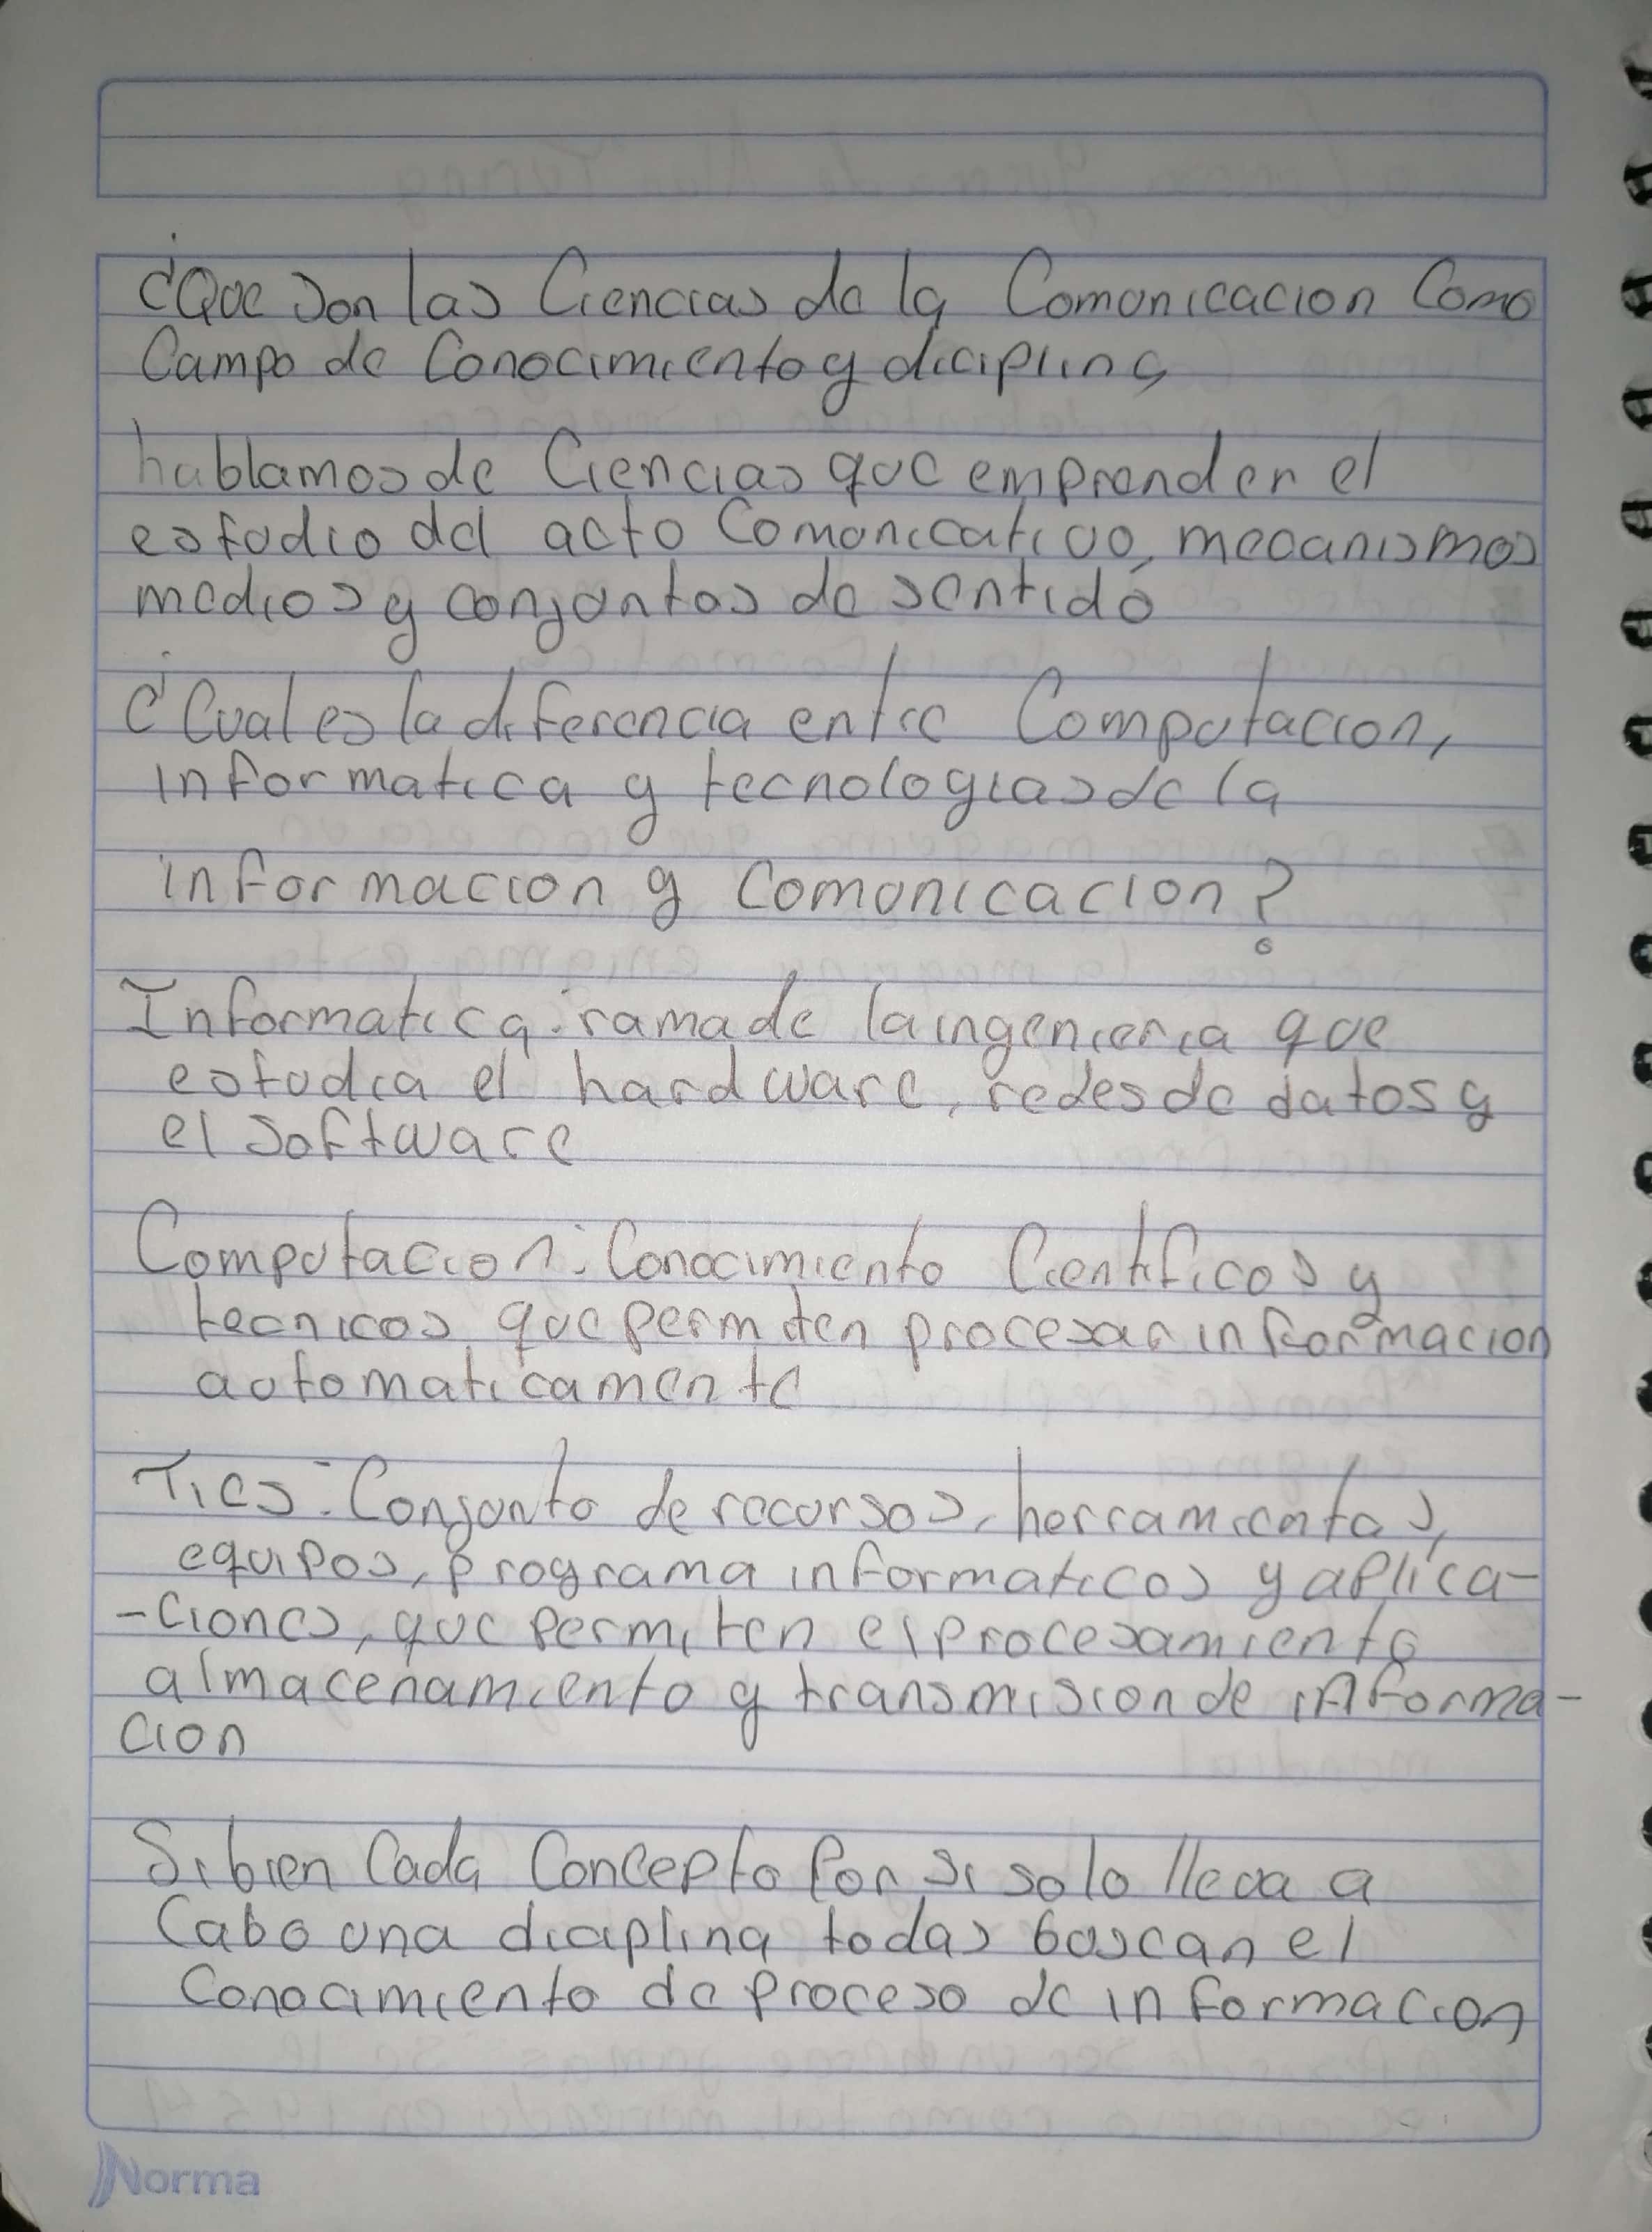 ¿Que son las Ciencias de la Comunicacion Como
Campo de Conocimiento y diciplina
hablamos de Ciencias que emprenden el
estudio del acto Comunicativo, mecanismos
medios y conjuntos de sentido
¿Cual es la diferencia entre Computacion,
informatica y tecnologias de la
informacion y Comunicacion?
Informatica: rama de la ingenieria que
estudia el hardware, redes de datos y
el Software
Computacion: Conocimiento Cientificos y
tecnicos que permiten procesar informacion
automaticamente
Tics: Conjunto de recursos, herramientas,
equipos, programa informaticos y aplica-
-ciones, que permiten el procesamiento
almacenamiento y transmision de informa-
cion
Si bien Cada Concepto Por si solo lleva a
Cabo una diciplina todas buscan el
Conocimiento de proceso de informacion
Norma